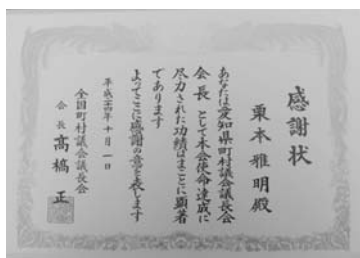 感謝状
栗本雅明殿
あなたは愛知県町村議会議長会
会長として本会使命達成に
尽力された功績はまことに顕著
であります
よってここに感謝の意を表します
平成二十四年十月一日
全国町村議会議長会
会長 髙橋正